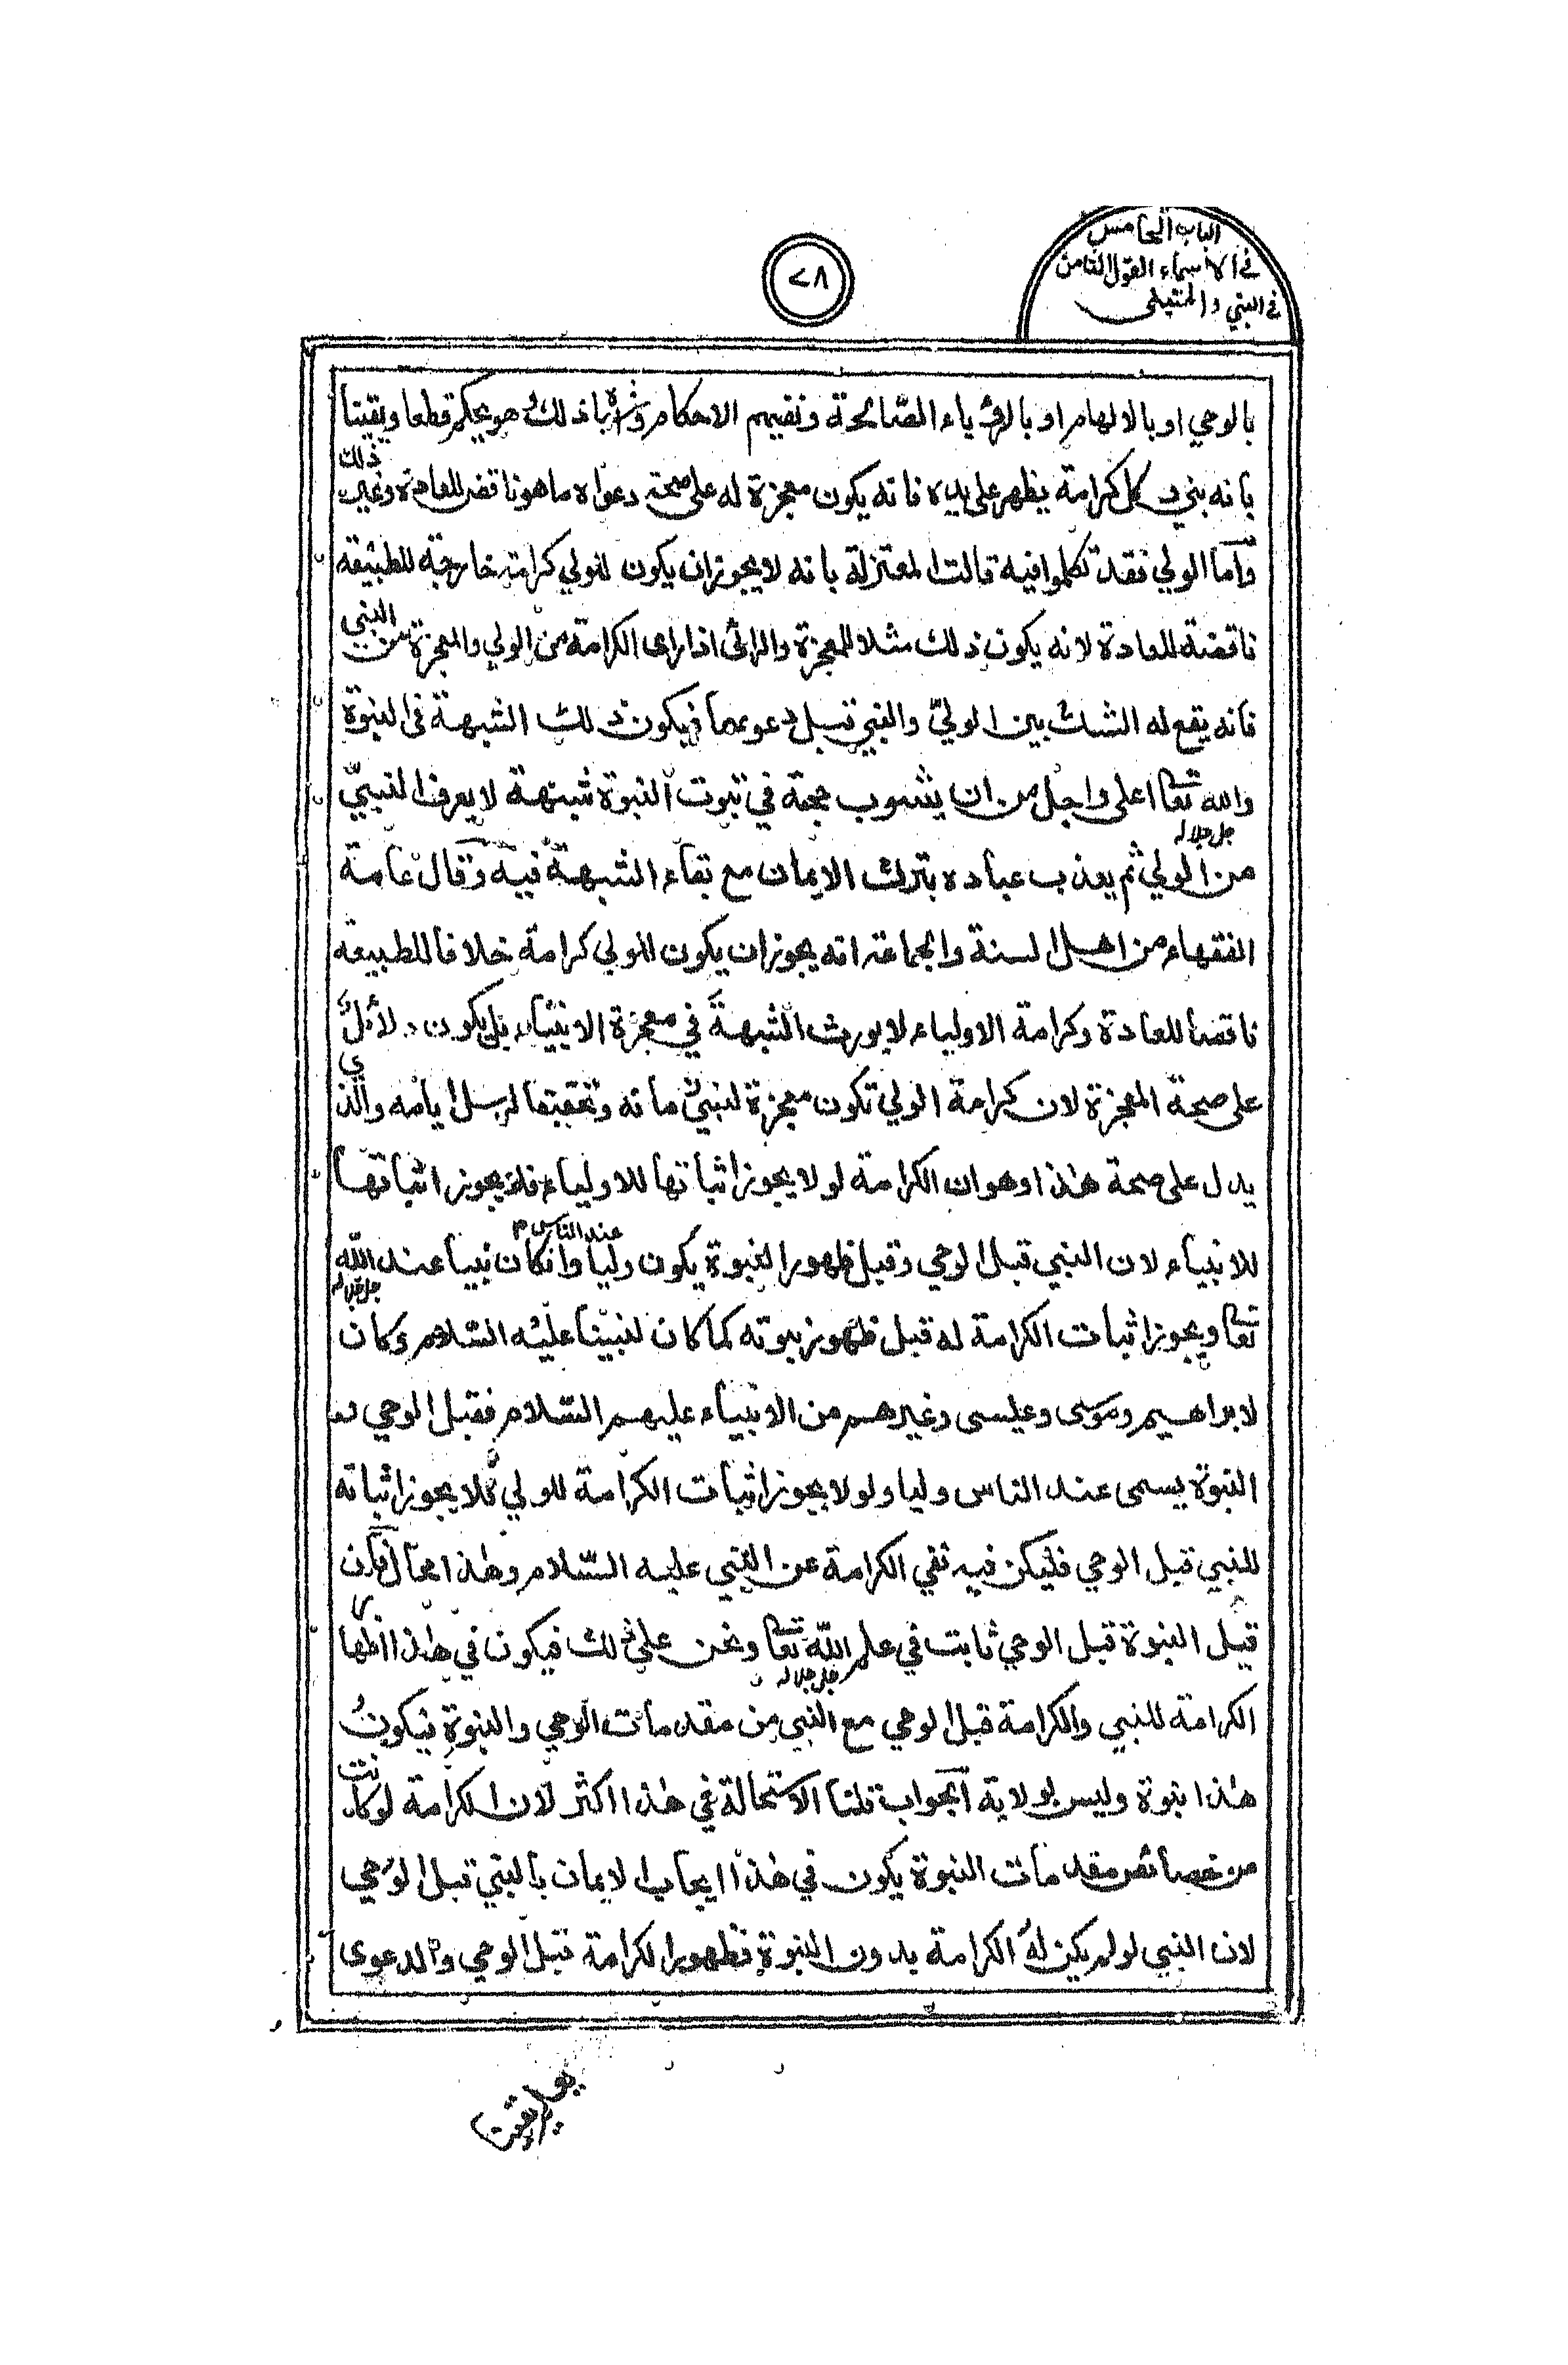 الباب الخامس
في الاسماء القول الثامن
في النبي و المتنبئ
٧٨
بالوحي او بالالهام او بالرؤياء الصالحة وتفهيم الاحكام هو يحكم قطعا ويقينا
بانه نبي و كل كرامة يظهر على يده فانه يكون معجزة له على صحة دعواه ما هو ناقض للعادة وغير ذلك
وأما الولي فقد تكلموا فيه قالت المعتزلة بانه لا يجوز ان يكون للولي كرامة خارجة للطبيعة
ناقضة للعادة لانه يكون ذلك مثلا للمعجزة والرائى اذا راى الكرامة من الولي والمعجزة من النبي
فانه يقع له الشك بين الولي والنبي قبل دعوىهما فيكون ذلك الشبهة فى النبوة
والله تعا جل جلاله اعلى واجل من ان يشوب حجة في ثبوت النبوة شبهة لا يعرف النبيّ
من الولي ثم يعذب عباده بترك الايمان مع بقاء الشبهة فيه وقال عامة
الفقهاء من اهل السنة والجماعة انه يجوز ان يكون للولي كرامة خلافا للطبيعة
ناقضا للعادة وكرامة الاولياء لا يورث الشبهة في معجزة الانبياء بل يكون دلائل
على صحة المعجزة لان كرامة الولي تكون معجزة لنبي زمانه وتحقيقا لرسل ايامه والذي
يدل على صحة هذا وهو ان الكرامة لو لا يجوز اثباتها للاولياء فلا يجوز اثباتها
للانبياء لان النبي قبل الوحي وقبل ظهور النبوة يكون وليا عند الناس وانكان نبيا عند الله
تعا جل جلاله ويجوز اثبات الكرامة له قبل ظهور نبوته كما كان لنبينا عليه السلام وكان
لابراهيم وموسى وعيسى وغيرهم من الانبياء عليهم السلام فقبل الوحي و
النبوة يسمى عند الناس وليا ولو لا يجوز اثبات الكرامة للولي فلا يجوز اثباته
للنبي قبل الوحي فليكن فيه نفي الكرامة عن النبي عليه السّلام وهذا محال فان
قيل النبوة قبل الوحي ثابت في علم الله تعا جل جلاله ونحن على ذلك فيكون في هذا اظهار
الكرامة للنبي والكرامة قبل الوحي مع النبي من مقدمات الوحي والنبوة فيكون
هذا نبوة وليس بولاية الجواب قلنا الاستحالة في هذا اكثر لان الكرامة لو كانت
من خصائص مقدمات النبوة يكون في هذا ايجاب الايمان بالنبي قبل الوحي
لان النبي لو لم يكن له الكرامة بدون النبوة فظهور الكرامة قبل الوحي والدعوى